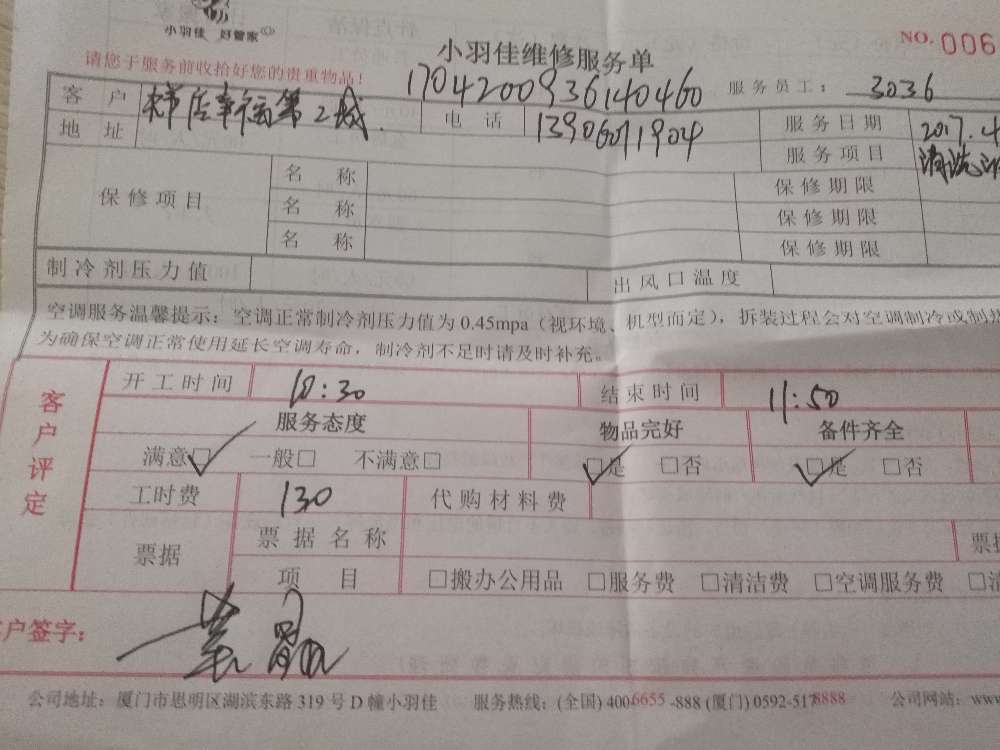 小羽佳 好管家
NO. 006
小羽佳维修服务单
请您于服务前收拾好您的贵重物品!
170420093614 0460
服务员工: 3036
客户地址 幸福第2城
电话 13906071904
服务日期 2017.4
服务项目 清洗
保修项目 名称 保修期限
名称 保修期限
名称 保修期限
制冷剂压力值 出风口温度
空调服务温馨提示:空调正常制冷剂压力值为0.45mpa(视环境、机型而定),拆装过程会对空调制冷或制热
为确保空调正常使用延长空调寿命,制冷剂不足时请及时补充。
客户评定
开工时间 10:30 结束时间 11:50
服务态度 物品完好 备件齐全
满意□ 一般□ 不满意□ □是 □否 □是 □否
工时费 130 代购材料费
票据 票据名称 票据
项目 □搬办公用品 □服务费 □清洁费 □空调服务费 □清
客户签字:
公司地址:厦门市思明区湖滨东路319号D幢小羽佳 服务热线:(全国)4006655-888(厦门)0592-5178888 公司网站:www